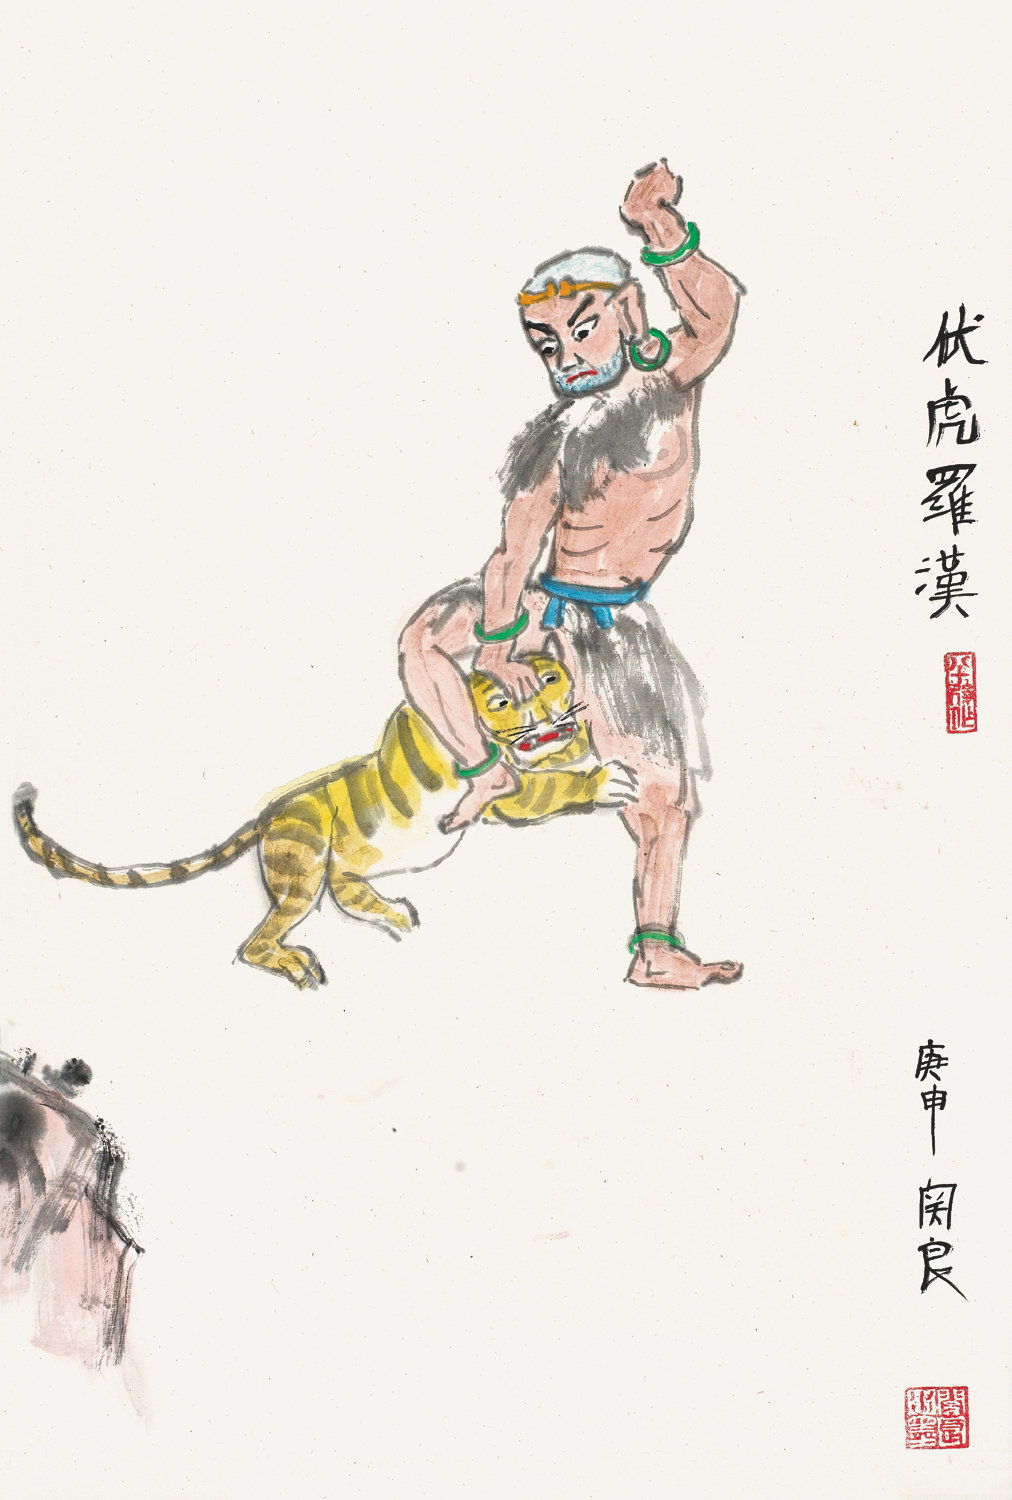 伏虎羅漢
庚申 関良